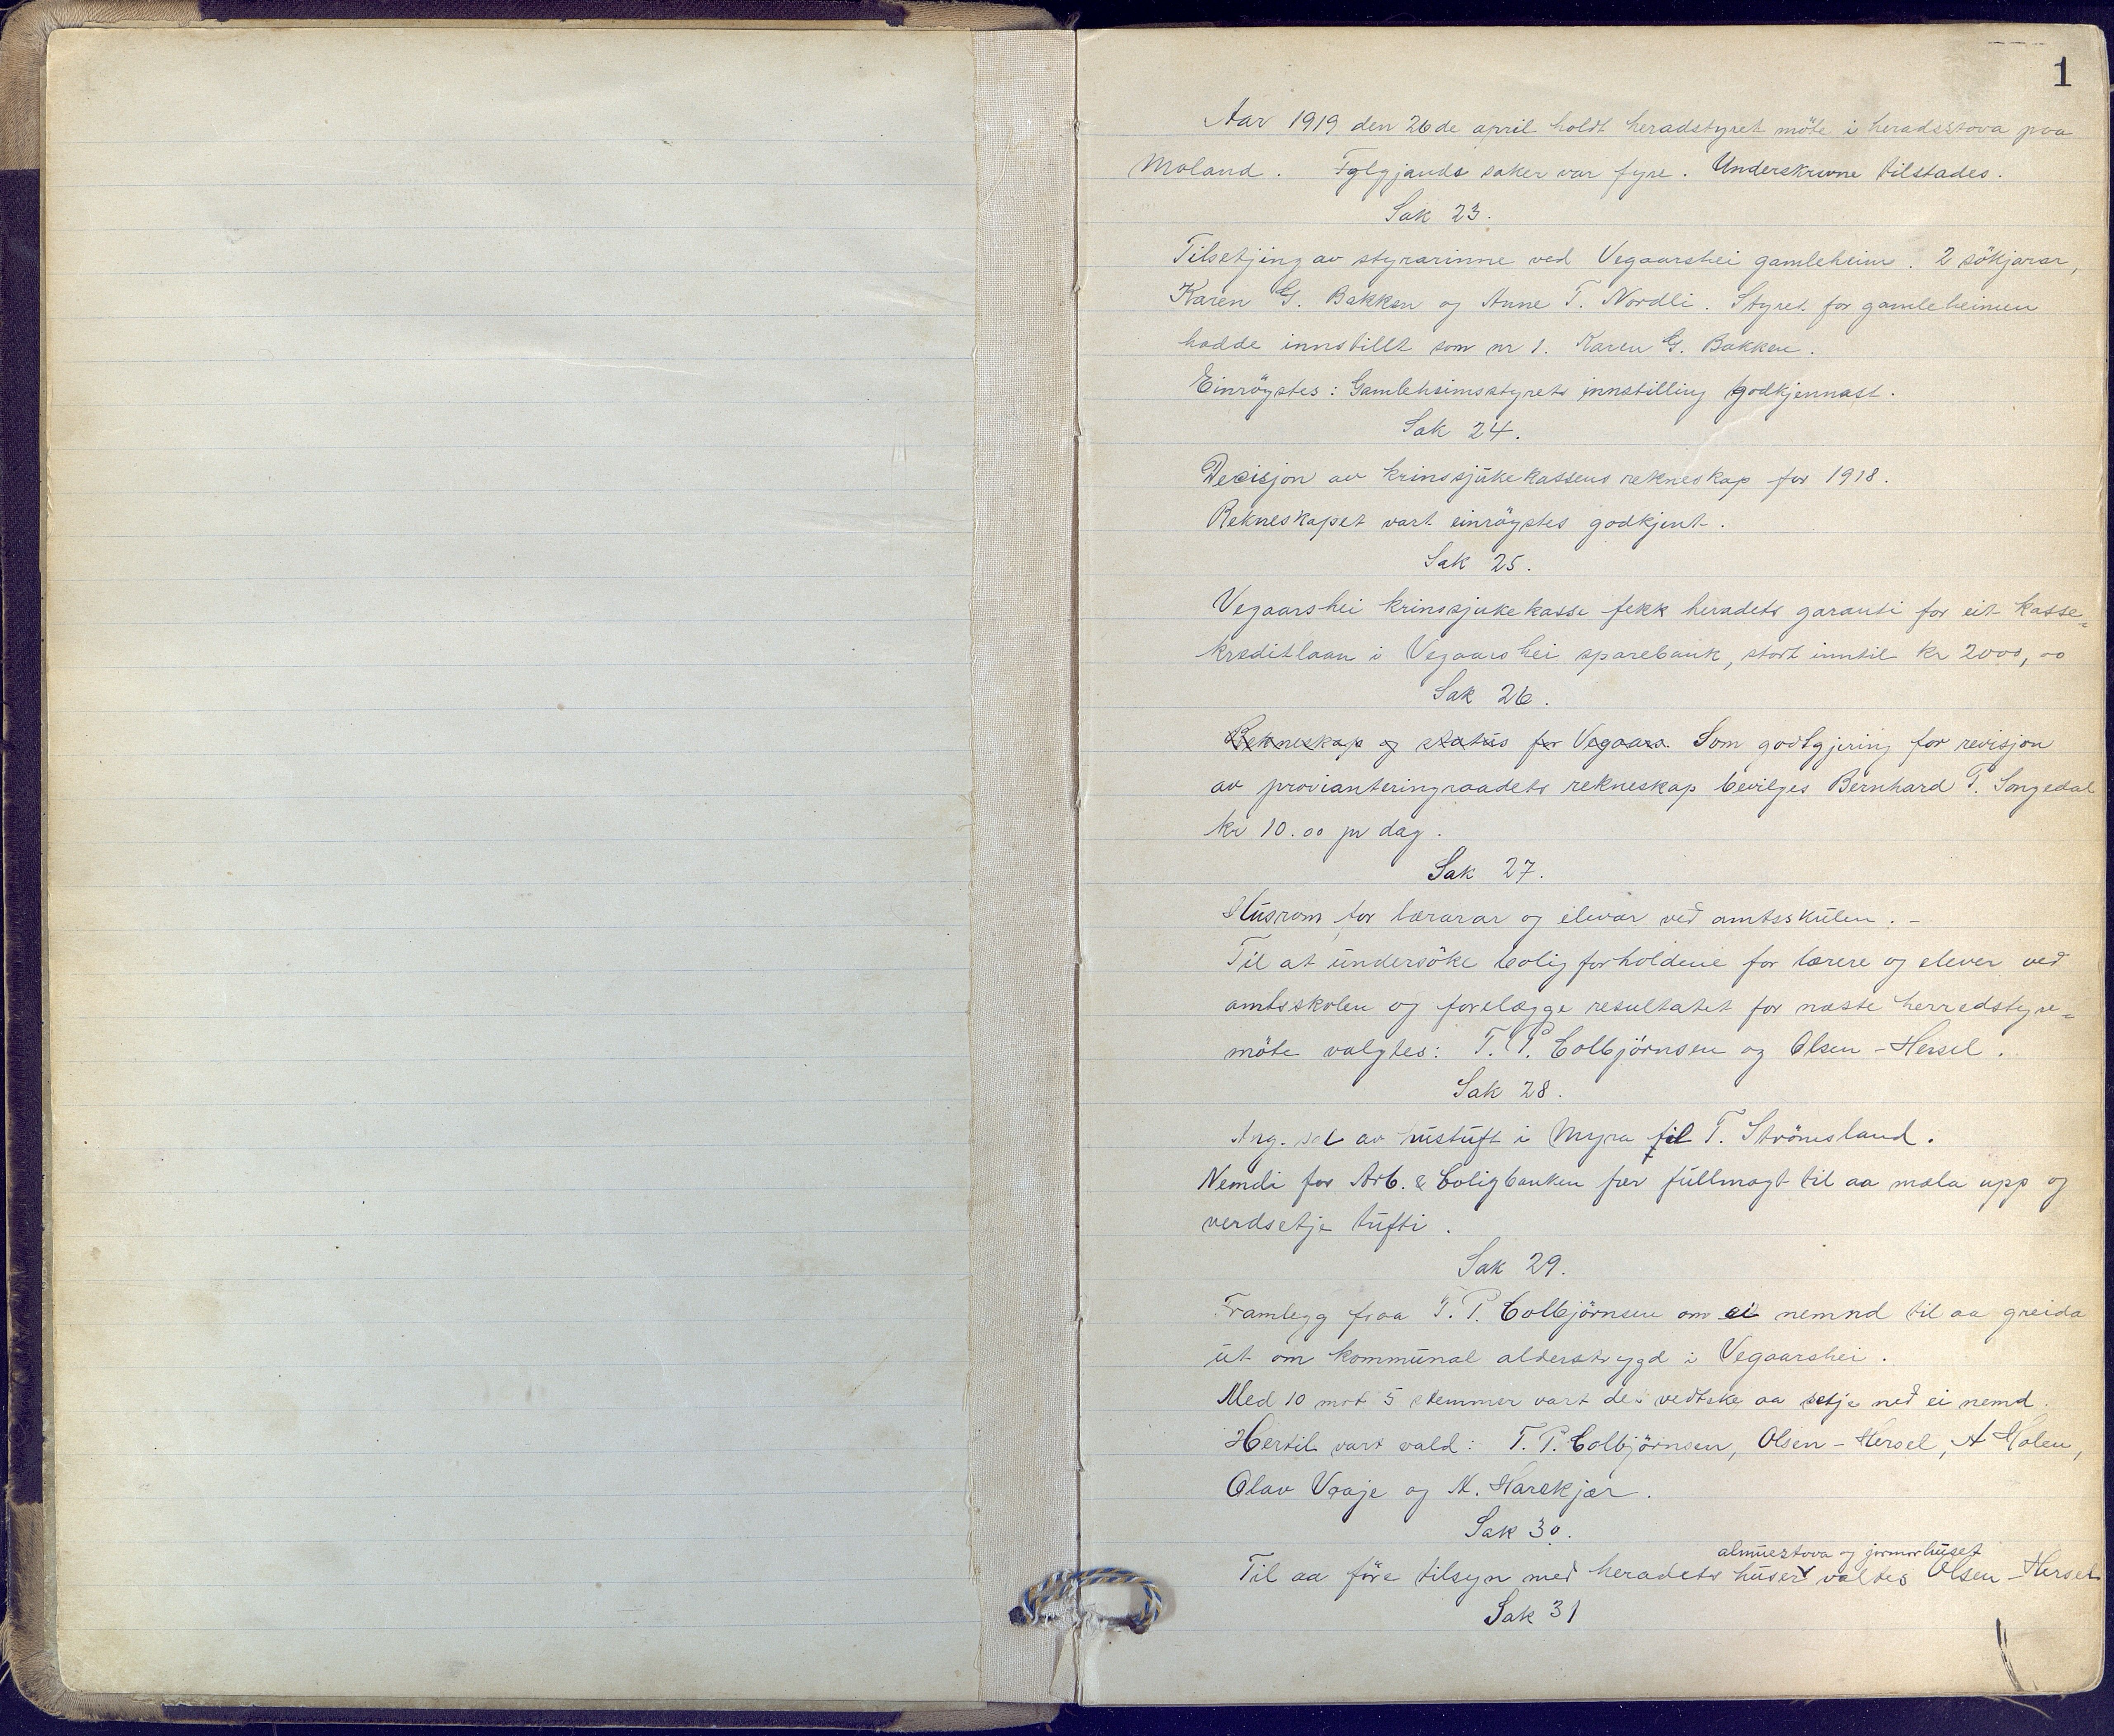 1
Aar 1919 den 26de april holdt heradstyret möte i heradsstova paa
Moland. Fylgjands saker var fyre. Underskrivne tilstades.
Sak 23.
Tilsetjing av styrarinne ved Vegaarshei gamleheim. 2 sökjarar,
Karen G. Bakken og Anne T. Nordli. Styret for gamleheimen
hadde innstillt som nr 1. Karen G. Bakken.
Einröystes: Gamleheimsstyrets innstilling godkjennast.
Sak 24.
Decisjon av krinssjukekassens rekneskap for 1918.
Rekneskapet vart einröystes godkjent.
Sak 25.
Vegaarshei krinssjukekasse fekk heradets garanti for eit kasse=
kreditlaan i Vegaarshei sparebank, stort inntil kr 2000,00
Sak 26.
Rekneskap og status for Vegaars. Som godtgjering for revisjon
av provianteringraadets rekneskap bevilges Bernhard T. Songedal
kr 10.00 pr dag.
Sak 27.
Husrom for lærarar og elevar ved amtsskulen. -
Til at undersöke boligforholdene for lærere og elever ved
amtsskolen og forelægge resultatet for næste herredstyre=
möte valgtes: T. P. Colbjörnsen og Olsen-Hersel.
Sak 28.
Ang. sal av hustuft i Myra til T. Strömsland.
Nemdi for Arb. & boligbanken fær fullmagt til aa mæla upp og
verdsetje tufti.
Sak 29.
Framlegg fraa T. P. Colbjörnsen om ei nemnd til aa greida
ut om kommunal alderstrygd i Vegaarshei.
Med 10 mot 5 stemmer vart de vedteke aa setja ned ei nemd.
Hertil vart vald: T. P. Colbjörnsen, Olsen-Hersel, A Molen,
Olav Vaaje og N. Harekjær.
Sak 30.
almuestova og jormorhuset
Til aa före tilsyn med heradets huser valtes Olsen-Hersel
Sak 31